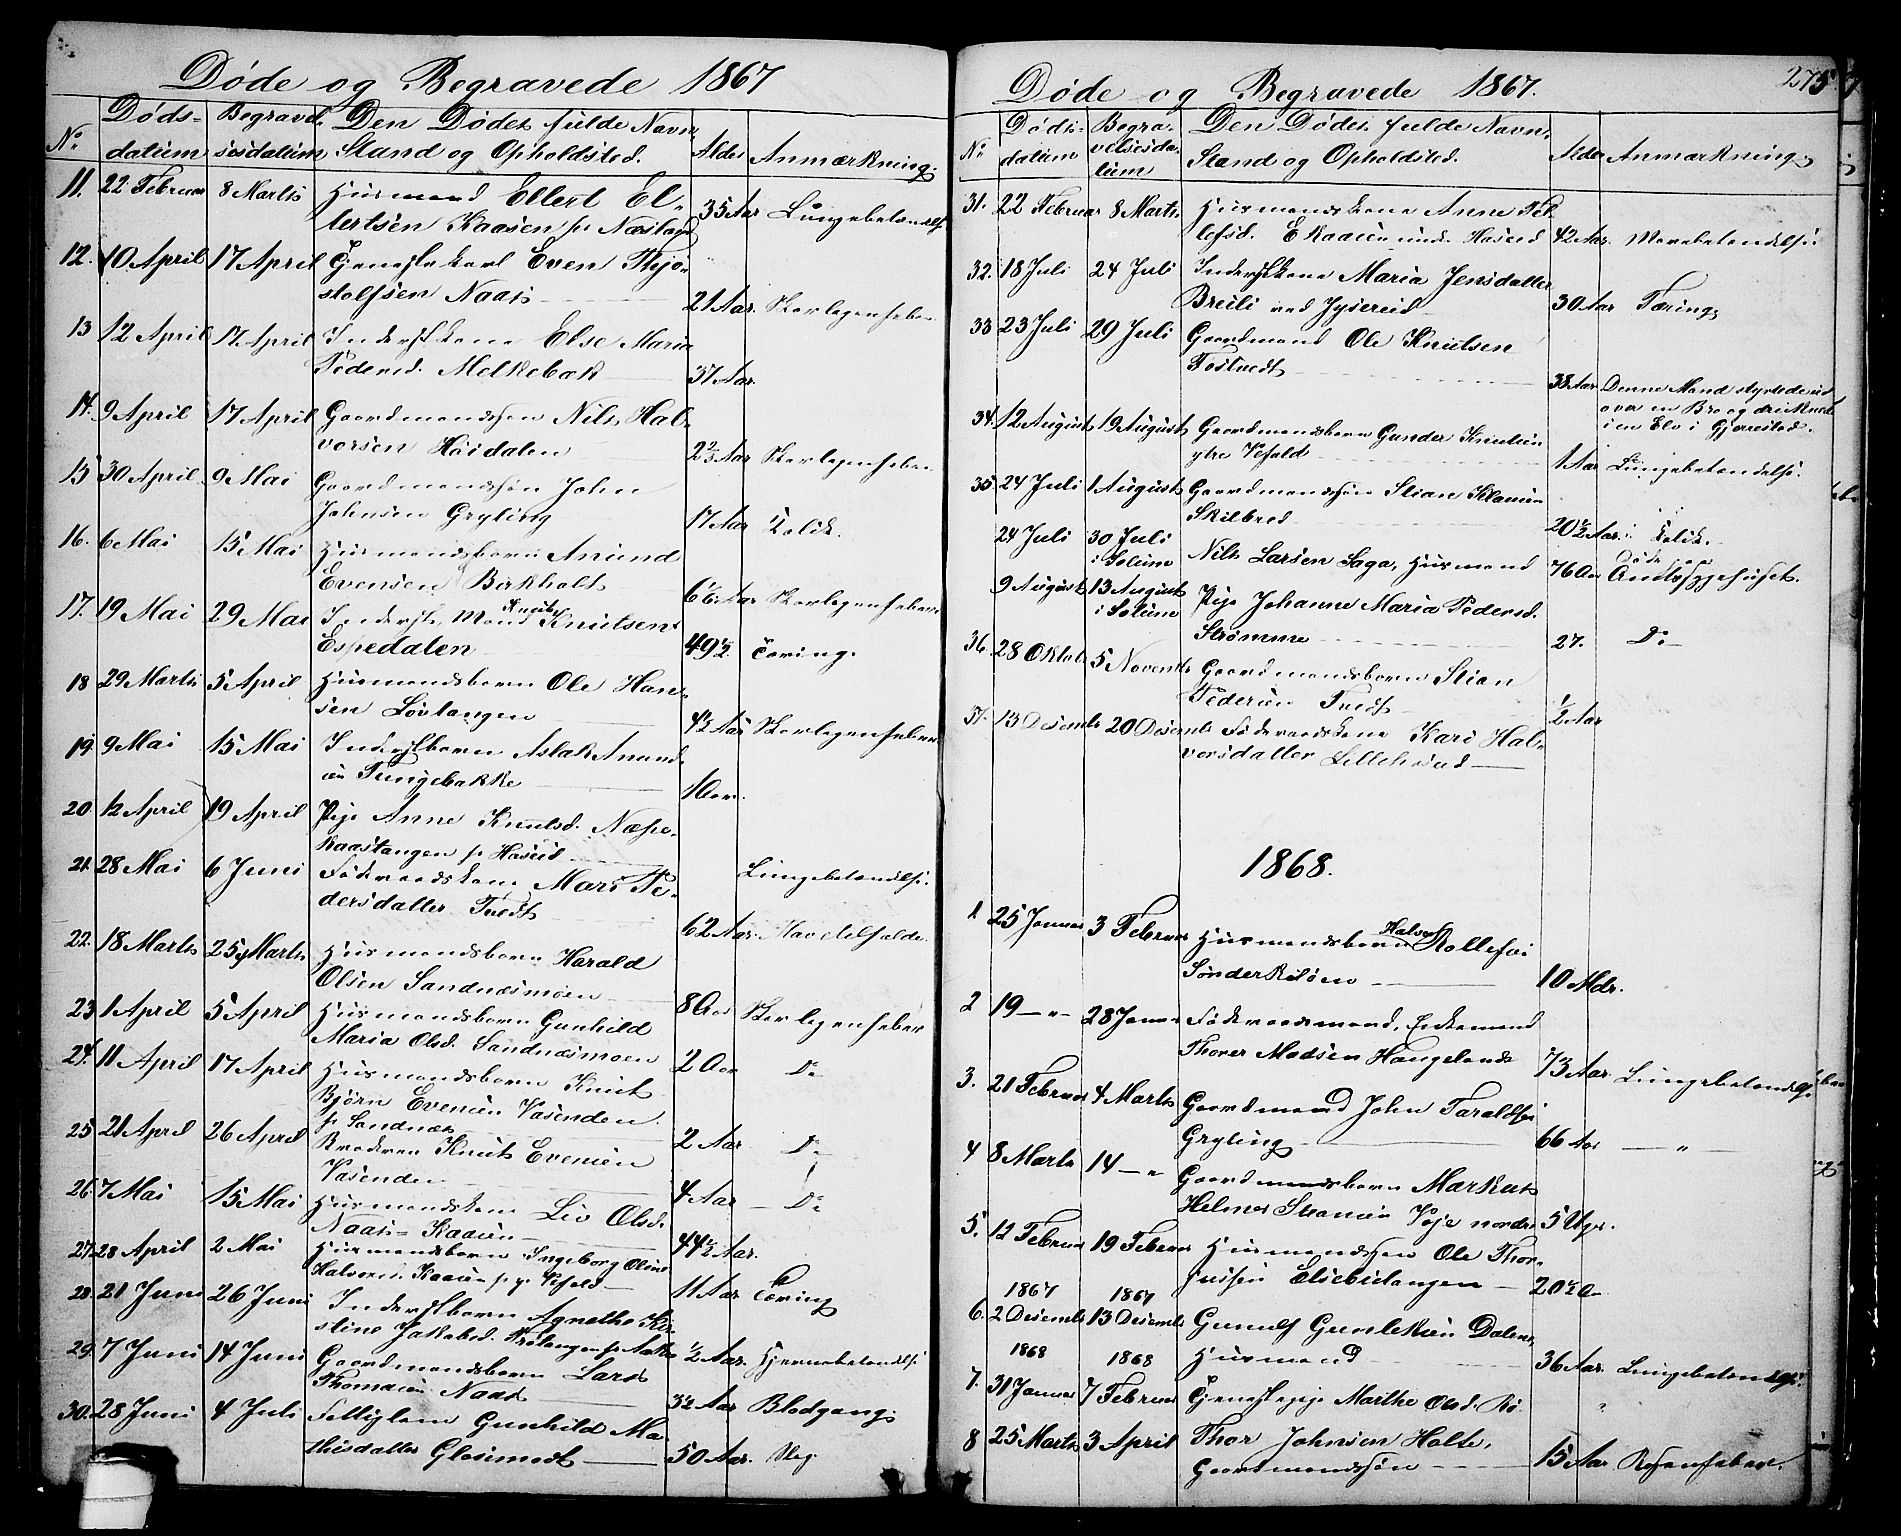 Døde og Begravede 1867
No
Døds-
datum
Begravel-
sesdatum
Den Dødes fulde Navn,
Stand og Opholdsted.
Alder
Anmærkning.
11. 22 Februar 8 Marts Husmand Ellert El-
lertsen Kaasen 35 Aar Lungebetændelse
12. 10 April 17 April Tjenestekarl Even Thjø-
stolfsen Naas 21 Aar. Skarlagensfeber
13 12 April 17 April Inderstkone Else Maria
Pedersd. Melkebæk 37 Aar.
14. 9 April 17 April Gaardmandssøn Nils Hal-
vorsen Høidalen 2 2/3 Aar Skarlagensfeber
15 30 April 9 Mai Gaardmandssøn John
Johnsen Gryting 17 Aar Kolik.
16. 6 Mai 15 Mai Husmandsbarn Anund
Evensen Barkholt 6 1/2 Aar Skarlagensfeber
17. 19 Mai 29 Mai Inderst, Mand Knut Knutsen
Espedalen 49 1/2 Tæring.
18 29 Marts 5 April Husmandsbarn Ole Han-
sen Løvtangen 4 1/2 Aar Skarlagensfeber
19. 9 Mai 15 Mai Inderstbarn Aslak Anund-
sen Tungebakke 1 Aar.
20. 12 April 19 April Pige Anne Knutsd. Næse-
kaastangen p. Haseid Lungebetændelse.
21. 28 Mai 6 Juni Føderaadskone Mari Pe-
dersdatter Tvedt 62 Aar.
22. 18 Marts 25 Marts Husmandsbarn Harald
Olsen Sandnæsmoen 8 Aar Skarlagensfeber
23 1 April 5 April Husmandsbarn Gunhild
Maria Olsd. Sandnæsmoen 2 Aar Do
24. 11 April 17 April Husmandsbarn Knut
Bjørn Evensen Vasenden
p. Sandnæs 2 Aar Do
25 21 April 26 April Broderen Knut Evensen
Vasenden 4 Aar Do
26. 7 Mai 15 Mai Husmandskone Liv Olsd.
Naas-Kaasen 44 1/2 Aar.
27. 28 April 2 Mai Husmandsbarn Ingeborg Oline
Halvorsd. Kaasen p. y. Vefald 11 Aar Tæring
28. 21 Juni 26 Juni Inderstbarn Agnethe Kir-
stine Jakobsd. 1/2 Aar. Hjernebetændelse
29. 7 Juni 14 Juni Gaardmandsbarn Lars
Thomasen Naas 3 1/2 Aar Blodgang
30. 28 Juni 4 Juli Fattiglem Gunhild Ma-
thisdatter Glosimodt 50 Aar. Slag
275.
Døde og Begravede 1867.
No
Døds-
datum
Begra-
velsesda-
tum
Den Dødes fulde Navn,
Stand og Opholdsted.
Alder
Anmærkning
31. 22 Februar 8 Marts Husmandskone Anne Tel-
lefsd. Ekaasen und. Haseid 42 Aar. Mavebetændelse.
32. 18 Juli 24 Juli Inderstkone Maria Jensdatter
Breili ved Jysereid 30 Aar Tæring
33 23 Juli 29 Juli Gaardmand Ole Knutsen
Tostvedt 38 Aar Denne Mand styrtede ud
over en Bro og druknede
i en Elv i Gjerrestad.
34. 12 August 19 August Gaardmandsbarn Gunder Knutsen
ytre Vefald 1 Aar Lungebetændelse.
35 24 Juli 1 August Gaardmandssøn Stian Klausen
Skilbred 20 1/2 Aar. Kolik.
24 Juli 30 Juli
i Solum Nils Larsen Saga, Husmand 76 Aar Døde paa
Amtssygehuset.
9 August 13 August
i Solum Pige Johanne Maria Pedersd.
Strømme 27. Do
36. 28 Oktob. 5 Novemb. Gaardmandsbarn Stian
Pedersen Tvedt 1/2 Aar
37. 13 Desemb. 20 Desemb. Føderaadskone Kari Hal-
vorsdatter Lilleh
1868.
1 25 Januar 3 Februar Husmandsbarn Halvor Rollefsen
Sønderkilöen 10 Mdr.
2 19 — " 28 Januar Føderaadsmand, Enkemand
Thorer Madsen Haugelands 73 Aar. Lungebetændelse
3. 21 Februar 4 Marts Gaardmand John Taraldsen
Gryting 66 Aar — " —
4 8 Marts 14 — " Gaardmandsbarn Markus
Helmer Stiansen Veje nordre 5 Uger.
5. 12 Februar 19 Februar Husmandssøn Ole Thor-
jussen Elsebutangen 20 1/2 A
1867 1867
6. 2 Desemb. 13 Desemb. Gunulf Gunleksen Dalen,
Husmand 36 Aar. Lungebetændelse.
1868 1868
7. 31 Januar 7 Februar Tjenestepige Marthe Olsd. Rø. "
8 25 Marts 3 April Thor Johnsen Holte,
Gaardmandssøn 15 Aar Rosenfeber.